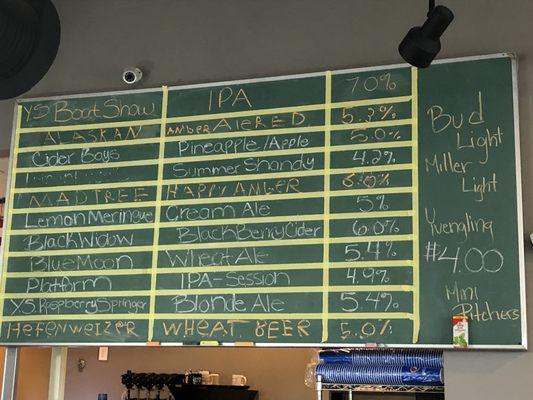 YS Boat Show IPA 70%
ALASKAN AMBER ALE RED 5.3%
Cider Boys Pineapple/Apple 5.0%
Summer Shandy 4.2%
MADTREE HAPPY AMBER
Lemon Meringue Cream Ale 5%
Black Widow BlackBerry Cider 60%
Blue Moon Wheat Ale 5.4%
Platform IPA-Session 4.9%
YS Raspberry Springer Blonde Ale 5.4%
HEFENWEIZER WHEAT BEER 5.0%
Bud
Light
Miller
Light
Yuengling
#4.00
Mini
Pitchers